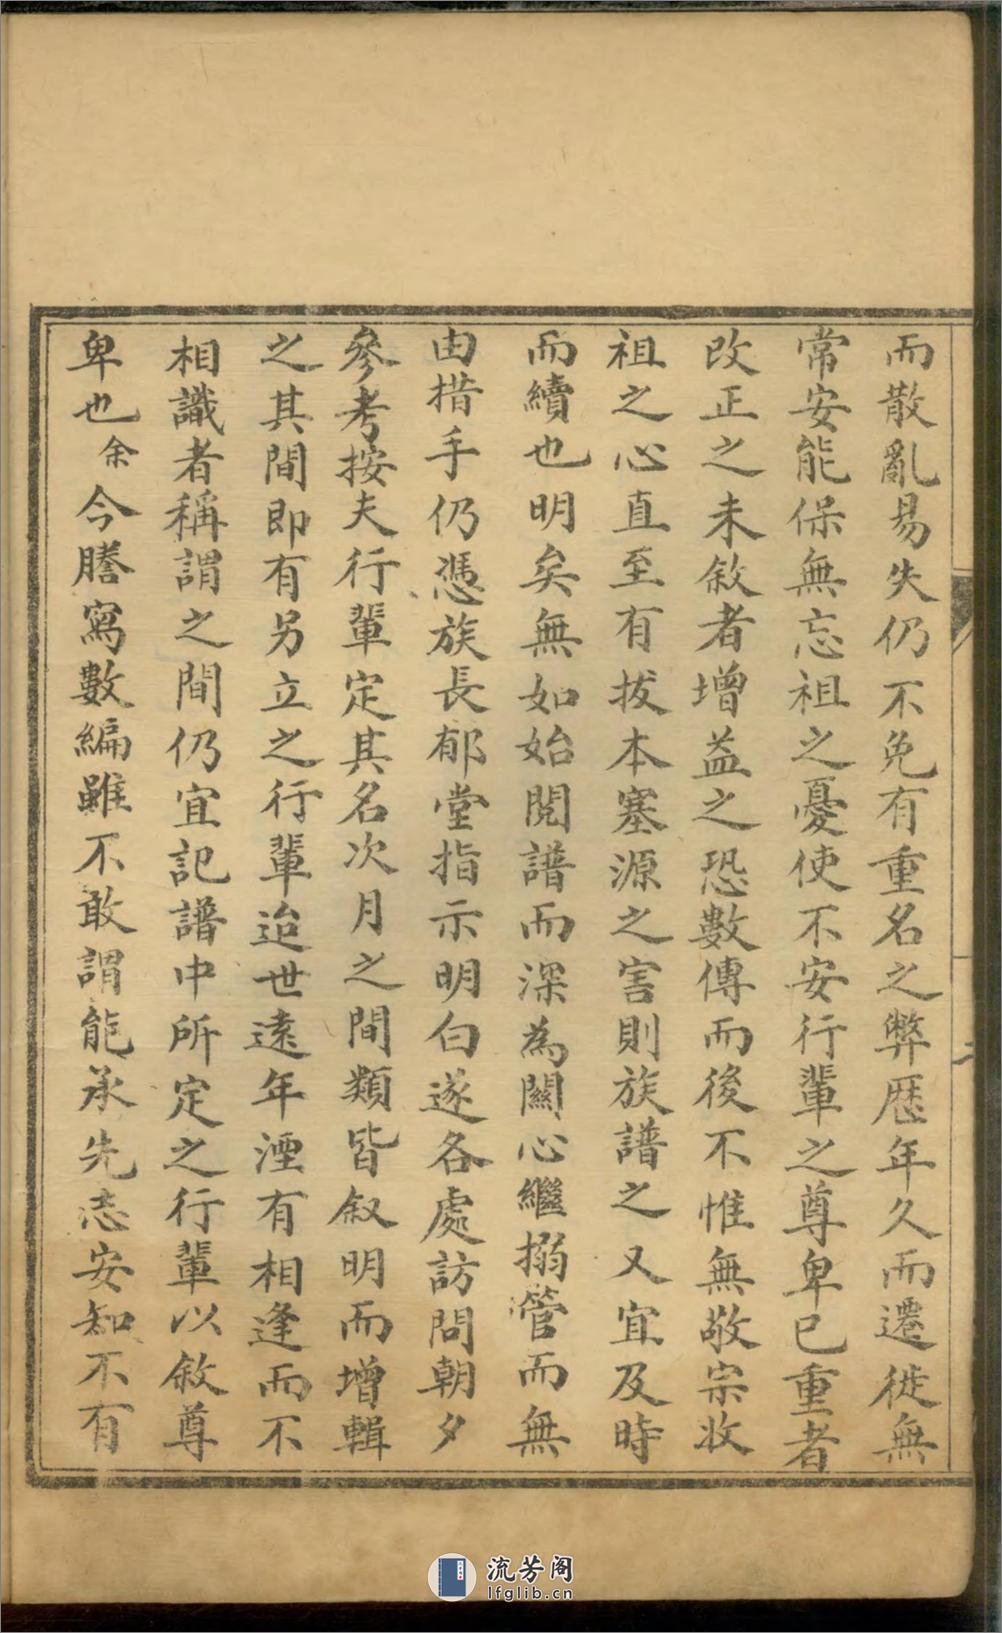 而散亂易失仍不免有重名之弊歷年久而遷徙無
常安能保無忘祖之憂使不安行輩之尊卑已重者
改正之未敘者增益之恐數傳而後不惟無敬宗收
祖之心直至有拔本塞源之害則族譜之又宜及時
而續也明矣無如始閱譜而深為關心繼搦管而無
由措手仍憑族長郁堂指示明白遂各處訪問朝夕
參考按夫行輩定其名次月之間類皆叙明而增輯
之其間即有另立之行輩迨世遠年湮有相逢而不
相識者稱謂之間仍宜記譜中所定之行輩以敘尊
卑也余今謄寫數編雖不敢謂能承先志安知不有
流芳阁
lfglib.cn